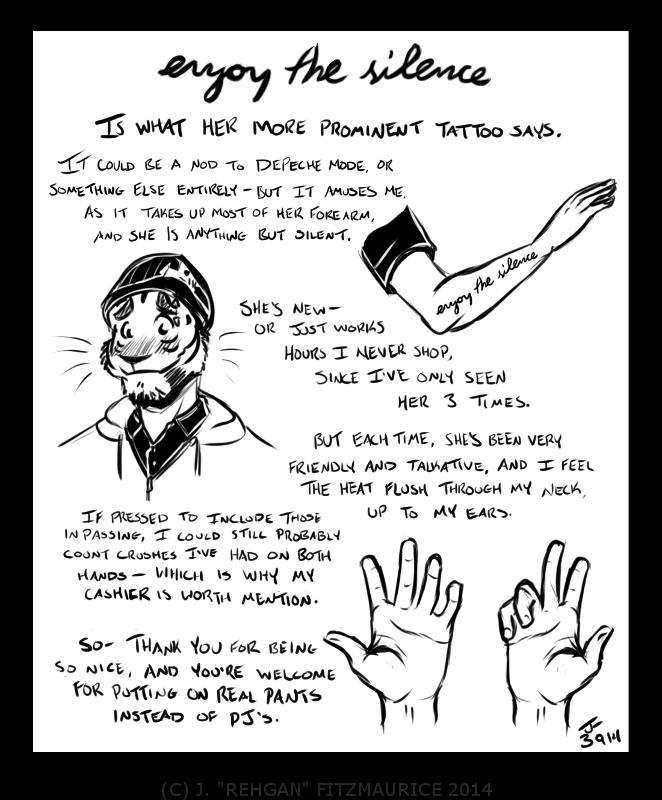 enjoy the silence
Is what her more prominent tattoo says.
It could be a nod to Depeche Mode, or
something else entirely - but it amuses me,
as it takes up most of her forearm,
and she is anything but silent.
enjoy the silence
She's new -
or just works
hours I never shop,
since I've only seen
her 3 times.
But each time, she's been very
friendly and talkative, and I feel
the heat flush through my neck,
up to my ears.
If pressed to include those
in passing, I could still probably
count crushes I've had on both
hands - which is why my
cashier is worth mention.
So - thank you for being
so nice, and you're welcome
for putting on real pants
instead of PJ's.
3914
(C) J. "REHGAN" FITZMAURICE 2014